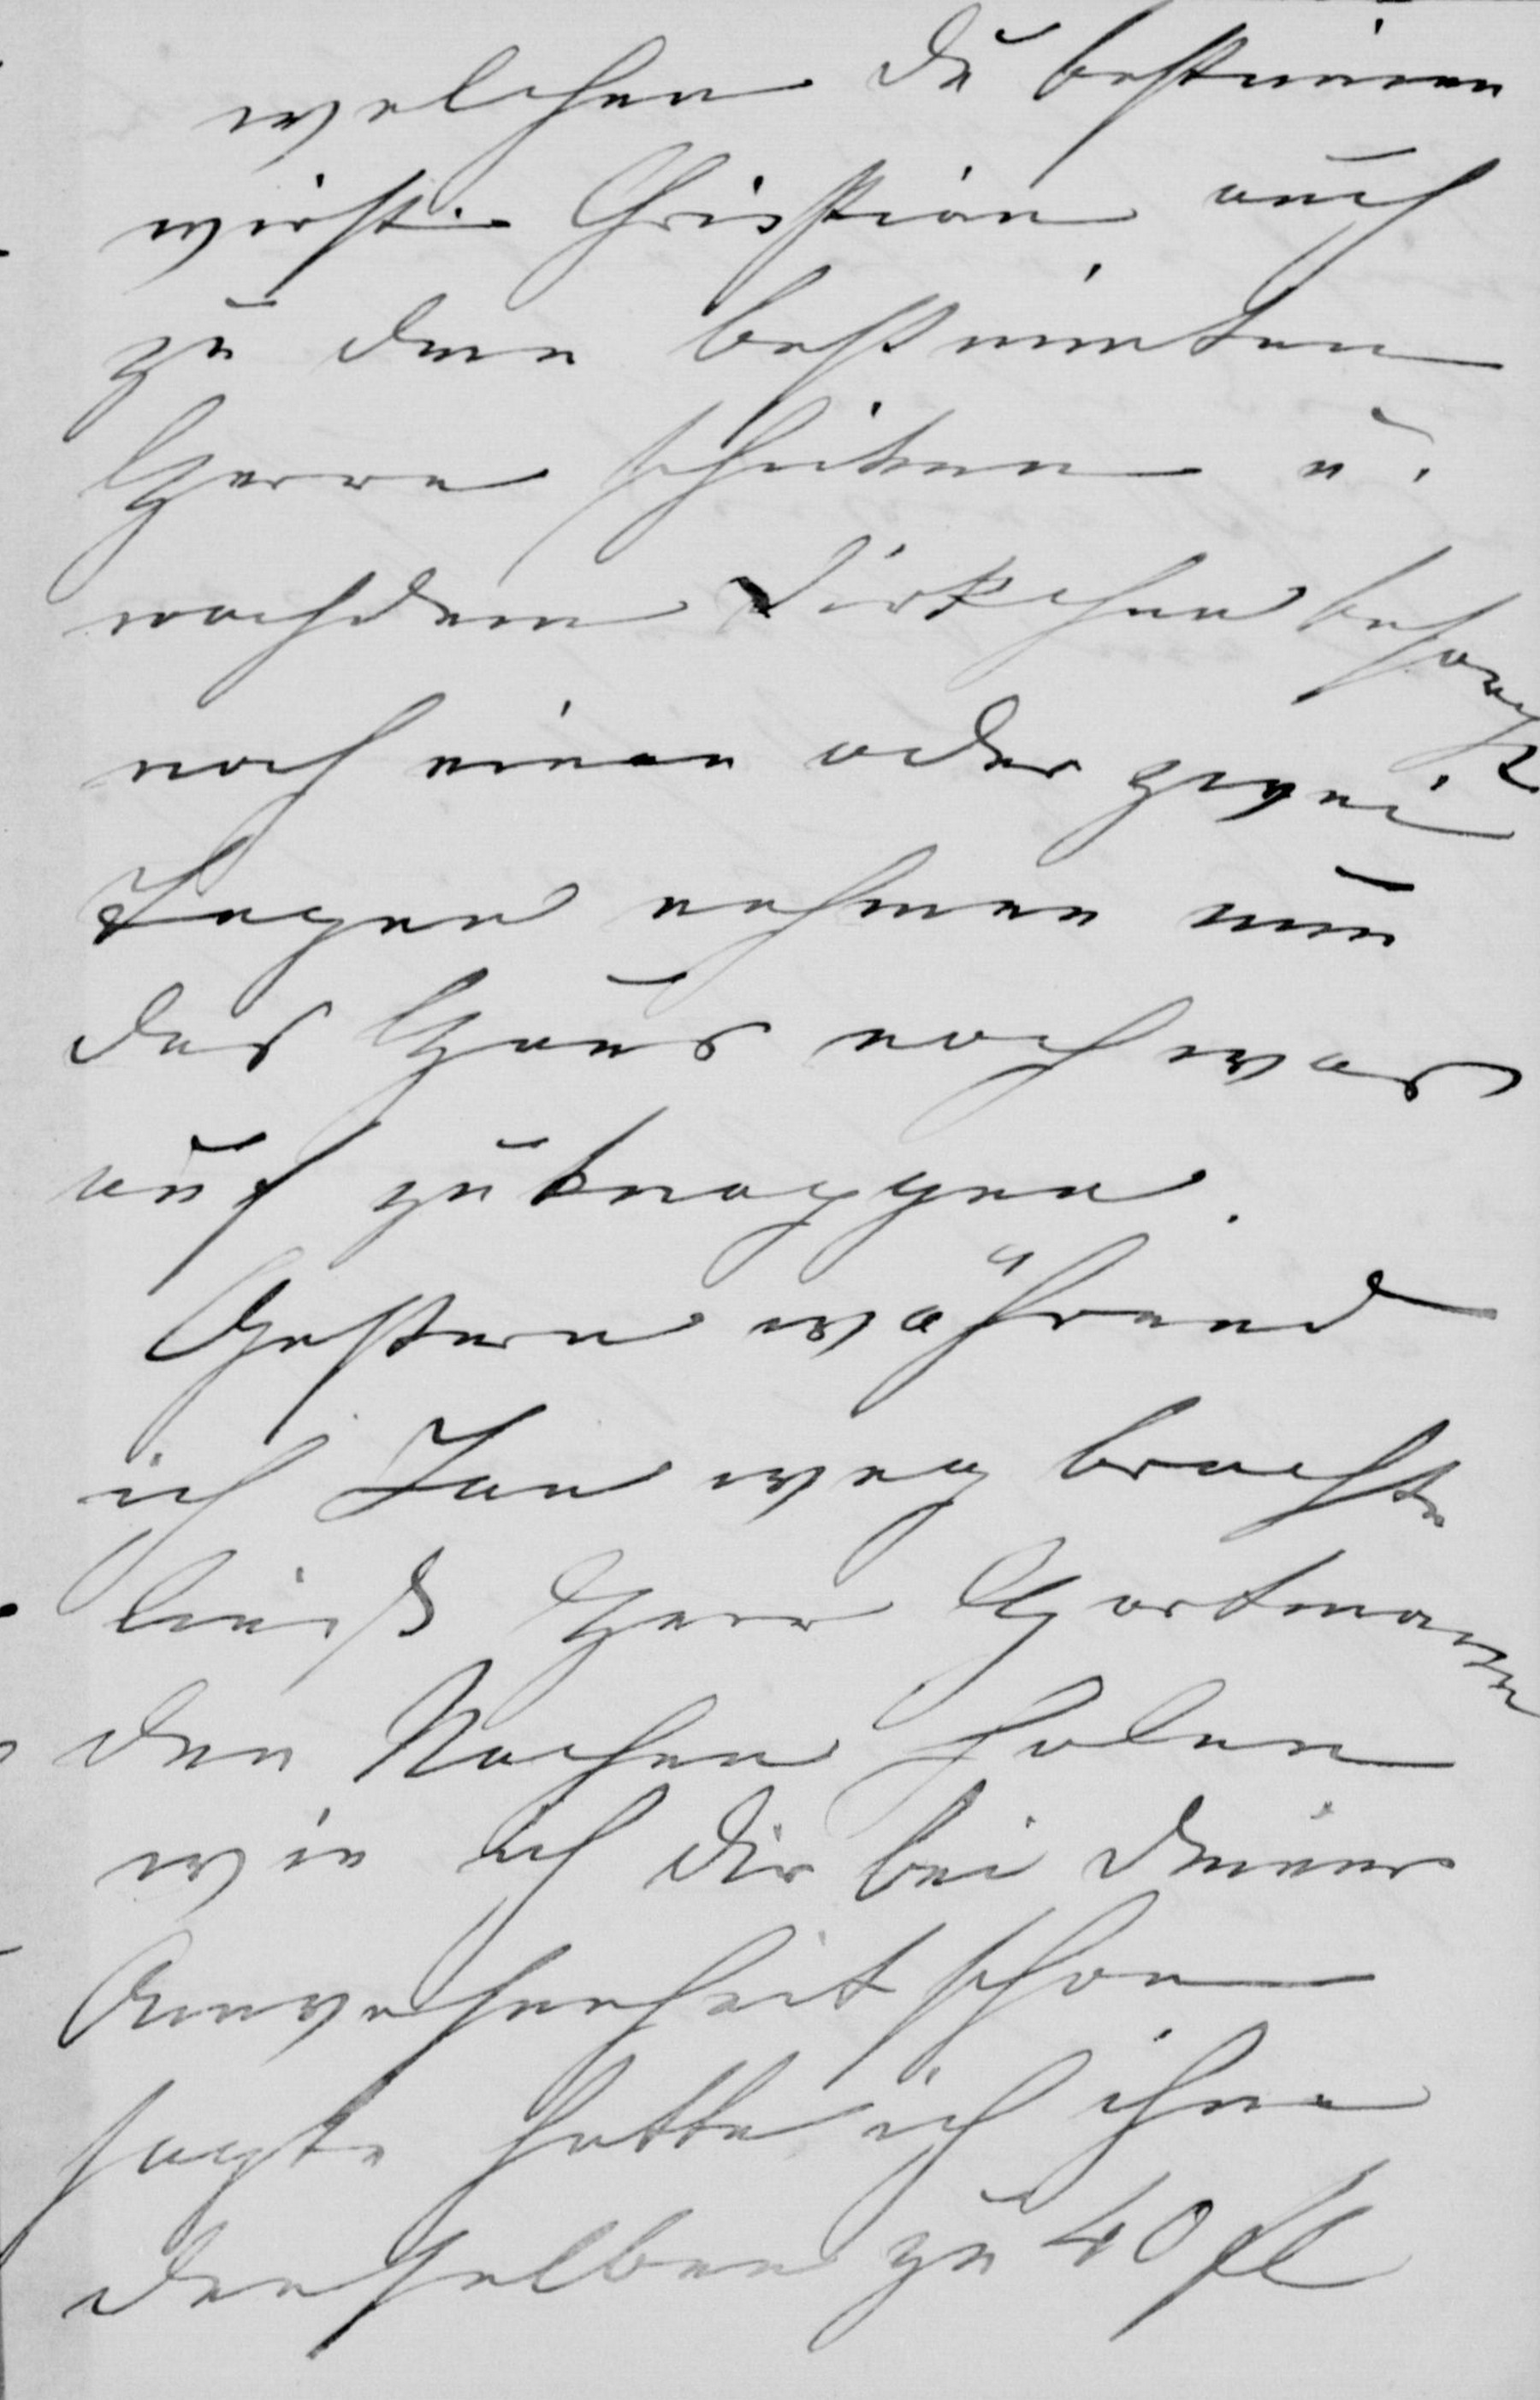 welchen Du bestimen
wirst. Christian auch
zu dem bestimten
Herrn schicken u.
nachdem besorgt
noch einen oder zwei
Tagen nehmen um
das Haus noch was
auf zuknappen.
Gestern während
ich Jan weg brachte
ließ Herr Hartmann
den Nachen holen
wie ich dir bei deiner
Anwesenheit schon
sagte hatte ich ihm
denselben zu 40 fl